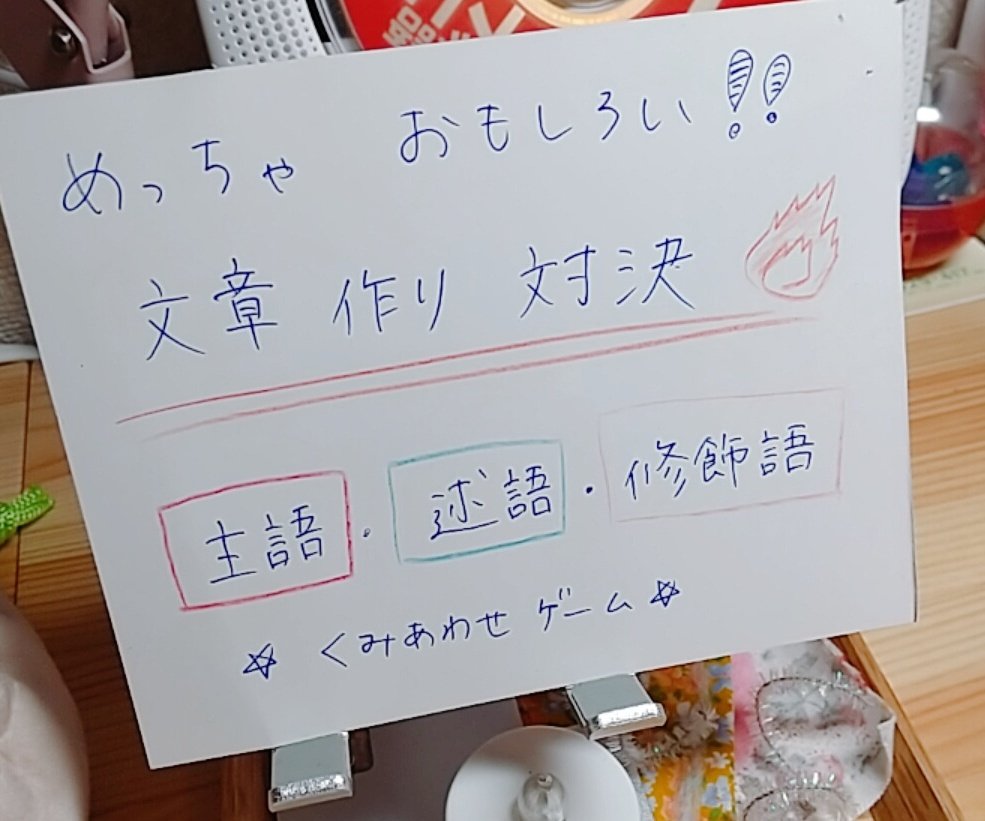 めっちゃ おもしろい!!
文章 作り 対決
主語・述語・修飾語
☆ くみあわせ ゲーム ☆